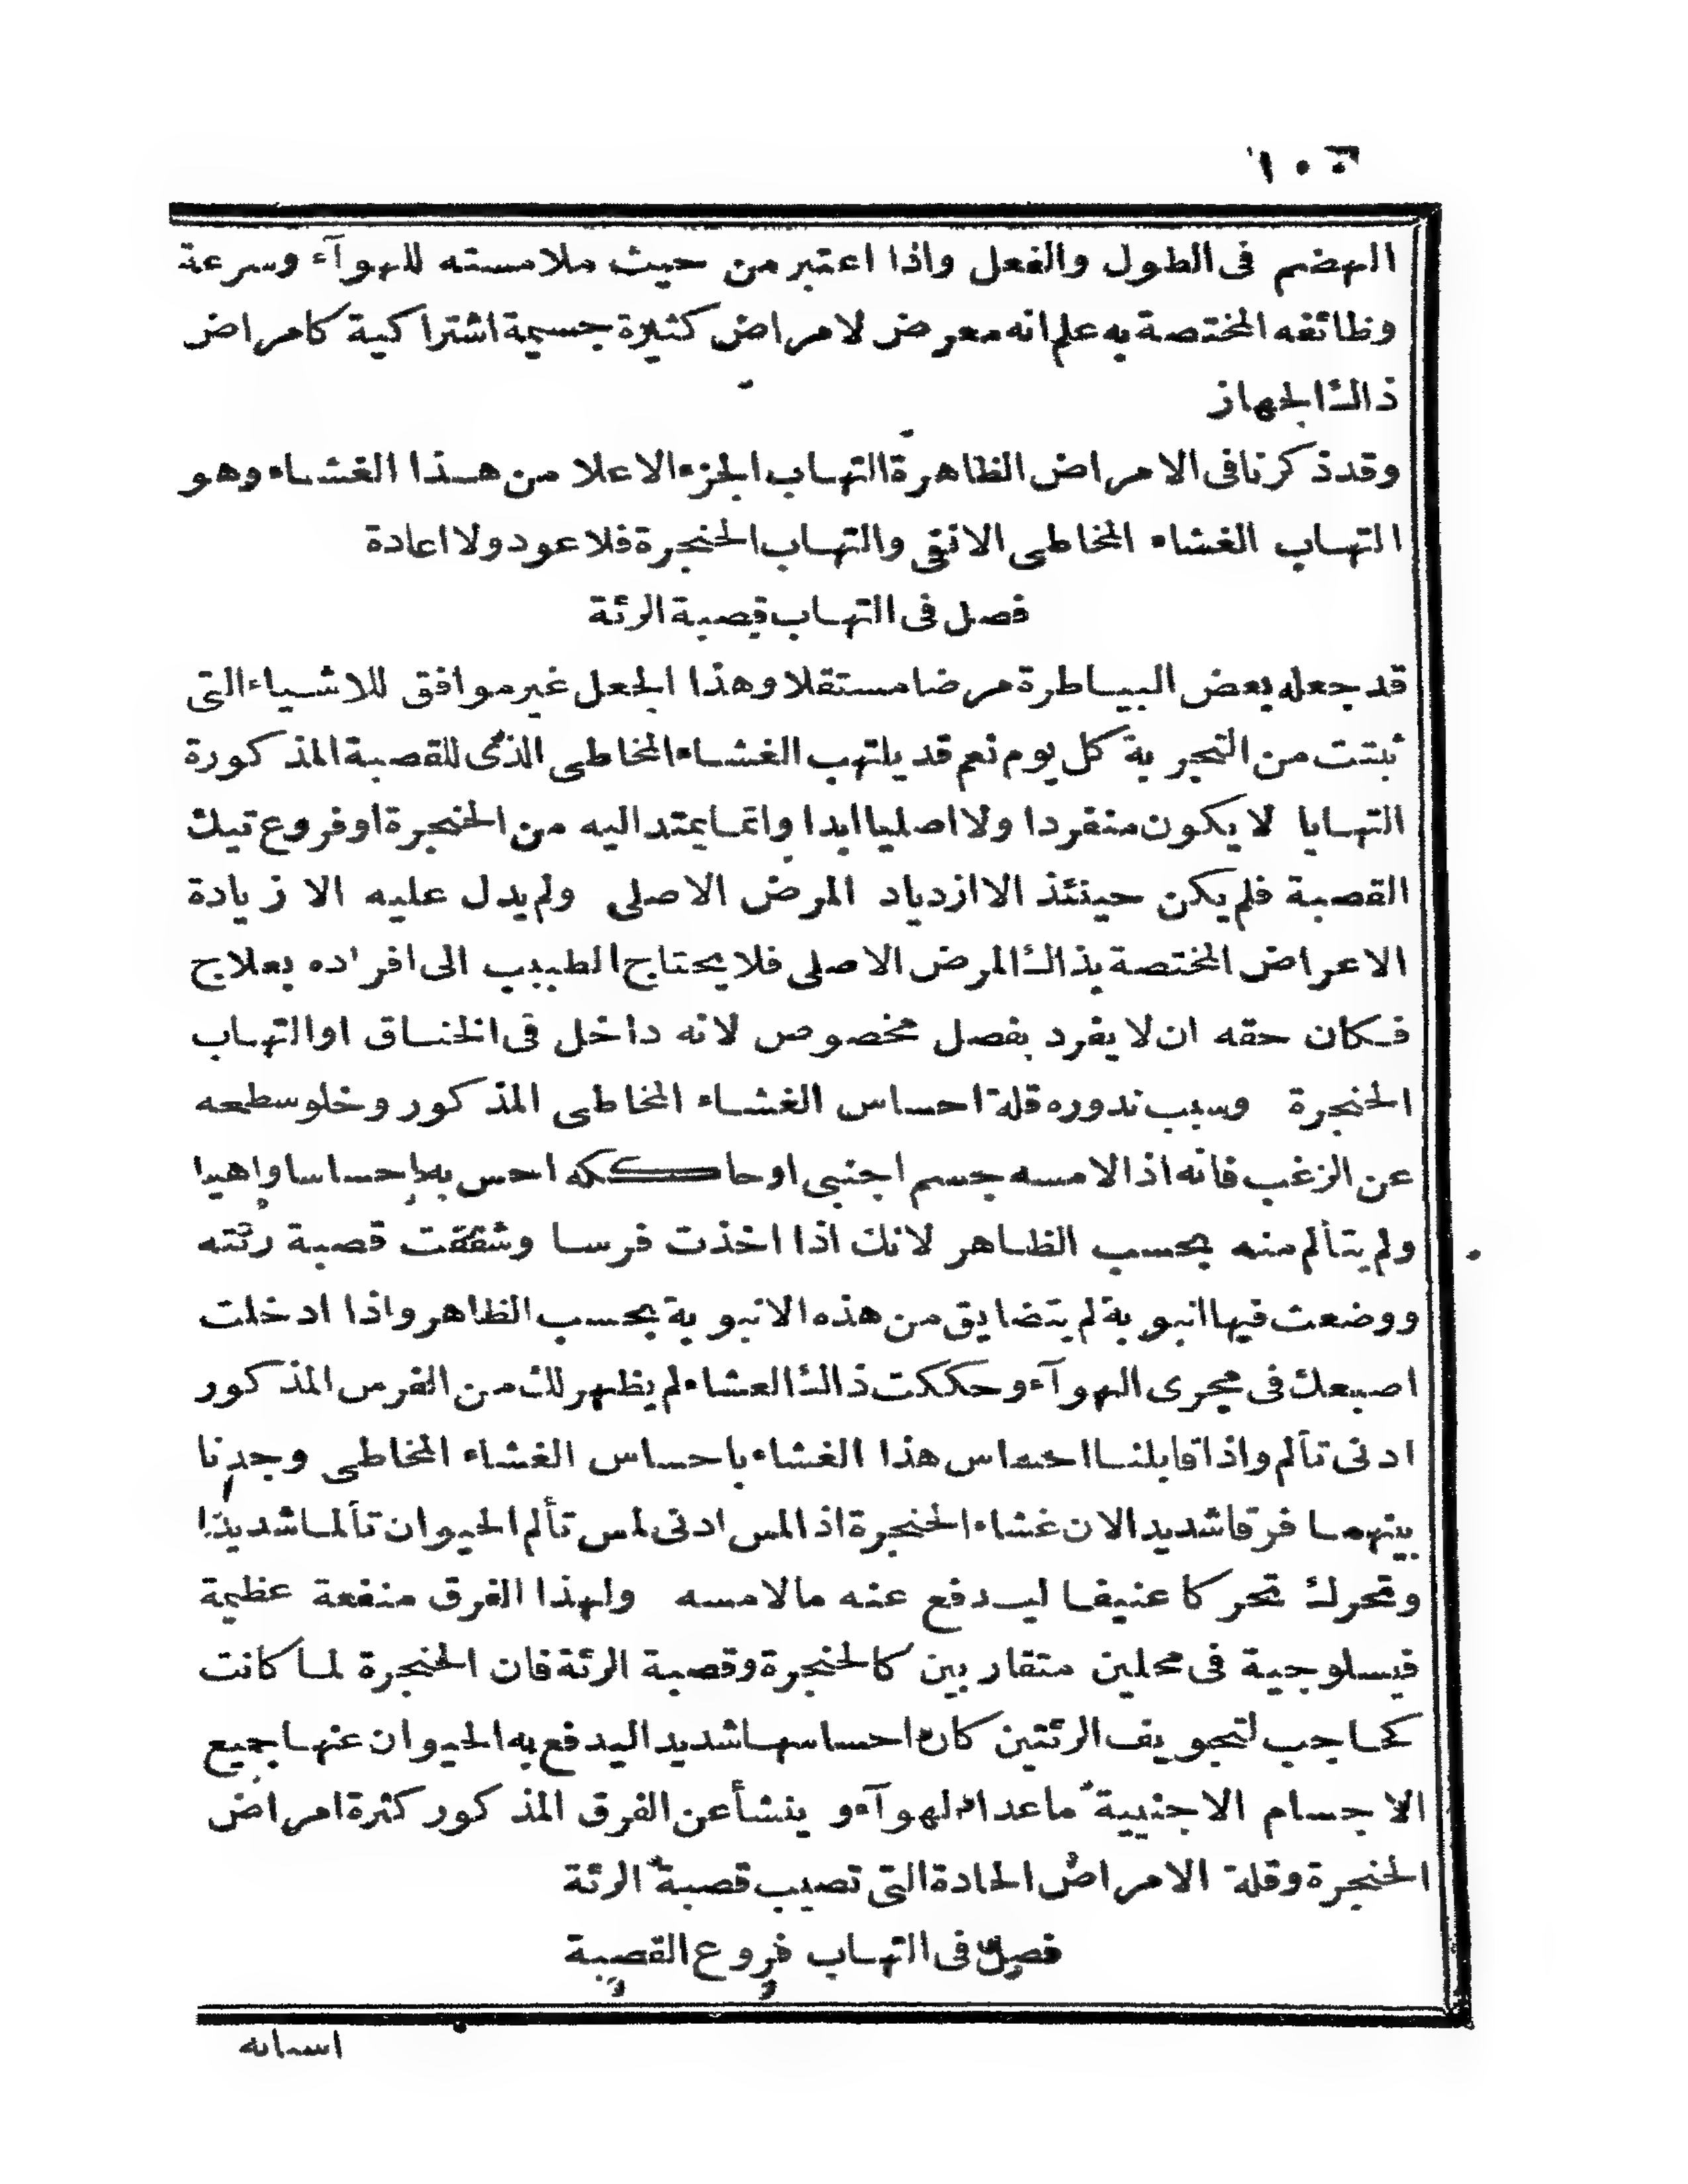 الهضم فى الطول والفعل واذا اعتبر من حيث ملامسته للهوآء وسرعة
وظائفه المختصة به علم انه معرض لامراض كثيرة جسيمة اشتراكية كامراض
ذالك الجهاز
وقد ذكرنا فى الامراض الظاهرة التهاب الجزء الاعلا من هذا الغشاء وهو
التهاب الغشاء المخاطى الانفى والتهاب الحنجرة فلا عود ولا اعادة
فصل فى التهاب قصبة الرئة
قد جعله بعض البياطرة مرضا مستقلا وهذا الجعل غير موافق للاشياء التى
ثبتت من التجربة كل يوم نعم قد يلتهب الغشاء المخاطى الذى للقصبة المذكورة
التهابا لا يكون منفردا ولا اصليا ابدا وانما يمتد اليه من الحنجرة او فروع تيك
القصبة فلم يكن حينئذ الا ازدياد المرض الاصلى ولم يدل عليه الا زيادة
الاعراض المختصة بذالك المرض الاصلى فلا يحتاج الطبيب الى افراده بعلاج
فكان حقه ان لا يفرد بفصل مخصوص لانه داخل فى الخناق او التهاب
الحنجرة وسبب ندوره قلة احساس الغشاء المخاطى المذكور وخلو سطحه
عن الزغب فانه اذا لامسه جسم اجنبى او حاككه احس به احساسا واهيا
ولم يتألم منه بحسب الظاهر لانك اذا اخذت فرسا وشققت قصبة رئته
ووضعت فيها انبوبة لم يتضايق من هذه الانبوبة بحسب الظاهر واذا ادخلت
اصبعك فى مجرى الهوآء وحككت ذالك العشاء لم يظهر لك من الفرس المذكور
ادنى تألم واذا قابلنا احساس هذا الغشاء باحساس الغشاء المخاطى وجدنا
بينهما فرقا شديدا لان غشاء الحنجرة اذا لمس ادنى لمس تألم الحيوان تألما شديدا
وتحرك تحركا عنيفا ليدفع عنه ما لامسه ولهذا الفرق منفعة عظيمة
فيسلوجية فى محلين متقاربين كالحنجرة وقصبة الرئة فان الحنجرة لما كانت
كحاجب لتجويف الرئتين كان احساسها شديدا ليدفع به الحيوان عنها جميع
الاجسام الاجنبية ما عدا الهوآء و ينشأ عن الفرق المذكور كثرة امراض
الحنجرة وقلة الامراض الحادة التى تصيب قصبة الرئة
فصل فى التهاب فروع القصبة
اسبابه